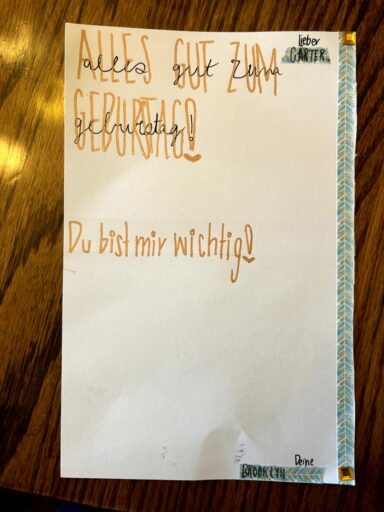 lieber
CARTER
ALLES GUT ZUM
alles gut zum
GEBURTSTAG!
geburstag!
Du bist mir wichtig!
Deine
BROOKLYN